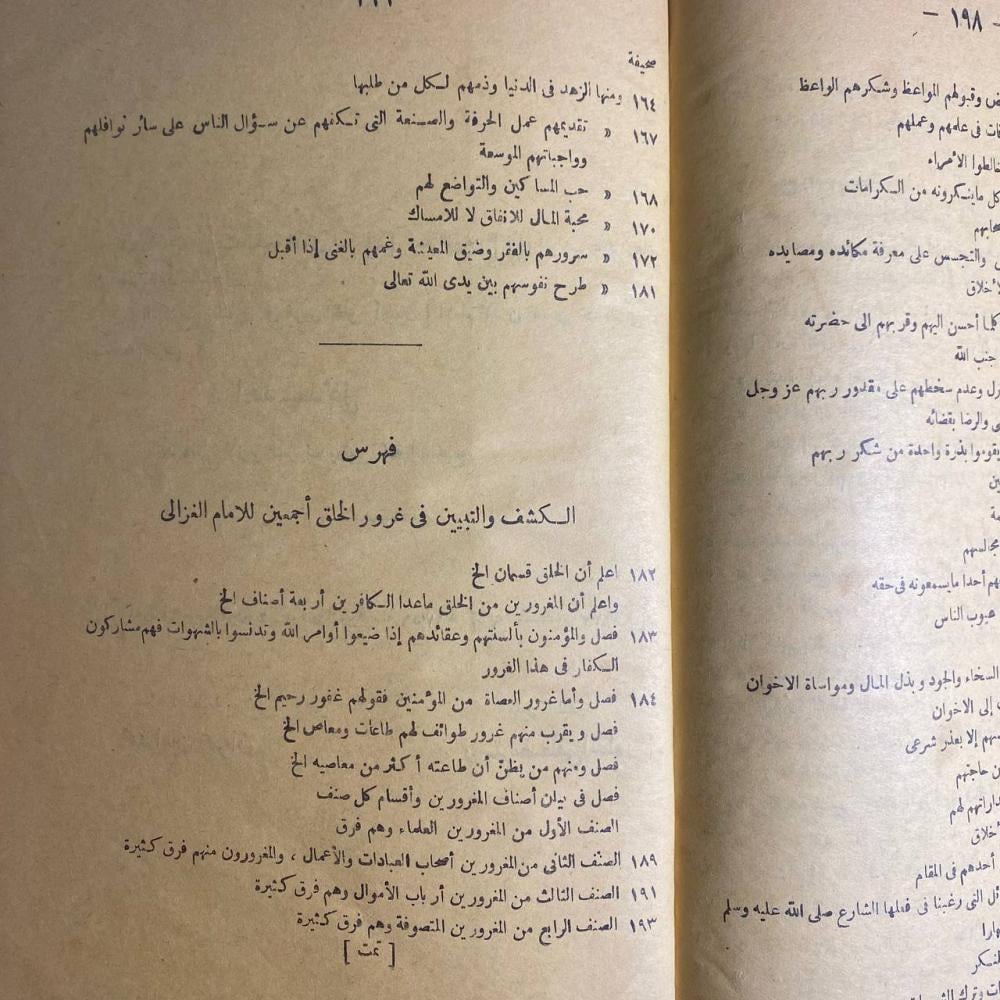 صحيفة
١٦٤ ومنها الزهد فى الدنيا وذمهم لكل من طلبها
١٦٧ » تقديمهم عمل الحرفة والصنعة التى تكفهم عن سؤال الناس على سائر نوافلهم
وواجباتهم الموسعة
١٦٨ » حب المساكين والتواضع لهم
١٧٠ » محبة المال للانفاق لا للامساك
١٧٢ » سرورهم بالفقر وضيق المعيشة وغمهم بالغنى إذا أقبل
١٨١ » طرح نفوسهم بين يدى الله تعالى
فهرس
الكشف والتبيين فى غرور الخلق أجمعين للامام الغزالى
١٨٢ اعلم أن الخلق قسمان الخ
واعلم أن المغرورين من الخلق ماعدا الكافرين أربعة أصناف الخ
١٨٣ فصل والمؤمنون بألسنتهم وعقائدهم إذا ضيعوا أوامر الله وتدنسوا بالشهوات فهم مشاركون
الكفار فى هذا الغرور
١٨٤ فصل وأما غرور العصاة من المؤمنين فقولهم غفور رحيم الخ
فصل ويقرب منهم غرور طوائف لهم طاعات ومعاص الخ
فصل ومنهم من يظن أن طاعته أكثر من معاصيه الخ
فصل فى بيان أصناف المغرورين وأقسام كل صنف
الصنف الأول من المغرورين العلماء وهم فرق
١٨٩ الصنف الثانى من المغرورين أصحاب العبادات والأعمال ، والمغرورون منهم فرق كثيرة
١٩١ الصنف الثالث من المغرورين أرباب الأموال وهم فرق كثيرة
١٩٣ الصنف الرابع من المغرورين المتصوفة وهم فرق كثيرة
[ تمت ]
١٩٨ —
وقبولهم المواعظ وشكرهم الواعظ
فى علمهم وعملهم
الأمراء
كل ماينكرونه من الكرامات
والتجسس على معرفة مكائده ومصايده
كلما أحسن اليهم وقربهم الى حضرته
جنب الله
وعدم سخطهم على مقدور ربهم عز وجل
والرضا بقضائه
بذرة واحدة من شكر ربهم
مجالسهم
أحدا مايسمعونه فى حقه
عيوب الناس
السخاء والجود وبذل المال ومواساة الاخوان
إلى الاخوان
إلا بعذر شرعى
حاجتهم
لهم
أحدهم فى المقام
التى رغبنا فى فعلها الشارع صلى الله عليه وسلم